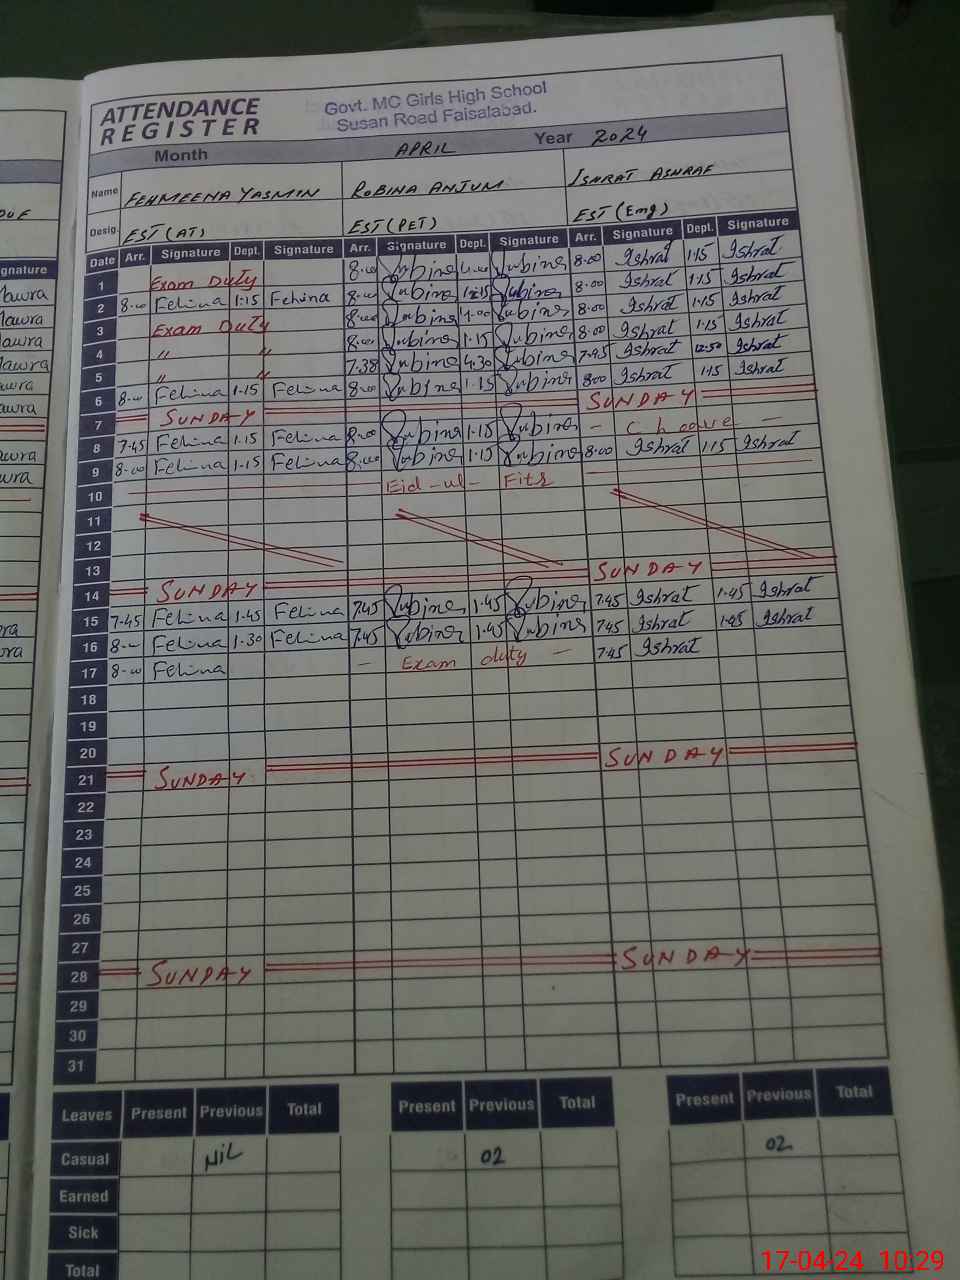 ATTENDANCE REGISTER
Govt. MC Girls High School
Susan Road Faisalabad.
Month APRIL Year 2024
Name FEHMEENA YASMIN ROBINA ANJUM ISHRAT ASHRAF
Desig. EST (AT) EST (PET) EST (Emg)
Date Arr. Signature Dept. Signature Arr. Signature Dept. Signature Arr. Signature Dept. Signature
1 Exam Duty 8.00 Rubina Rubina 8.00 Ishrat 1.15 Ishrat
2 8.00 Fehina 1:15 Fehina 8.00 Rubina 1.15 Rubina 8.00 Ishrat 1.15 Ishrat
3 Exam Duty 8.00 Rubina 1.00 Rubina 8.00 Ishrat 1.15 Ishrat
4 〃 〃 8.00 Rubina 1.15 Rubina 8.00 Ishrat 1.15 Ishrat
5 〃 〃 7.38 Rubina 4.30 Rubina 7.45 Ishrat 12.50 Ishrat
6 8.00 Fehina 1.15 Fehina 8.00 Rubina 1.15 Rubina 8.00 Ishrat 1.15 Ishrat
7 SUNDAY SUNDAY
8 7.45 Fehina 1.15 Fehina 8.00 Rubina 1.15 Rubina — —
9 8.00 Fehina 1.15 Fehina 8.00 Rubina 1.15 Rubina 8.00 Ishrat 1.15 Ishrat
10 Eid-ul-Fitr
11
12
13
14 SUNDAY SUNDAY
15 7.45 Fehina 1.45 Fehina 7.45 Rubina 1.45 Rubina 7.45 Ishrat 1.45 Ishrat
16 8.00 Fehina 1.30 Fehina 7.45 Rubina 1.45 Rubina 7.45 Ishrat 1.45 Ishrat
17 8.00 Fehina — Exam duty — 7.45 Ishrat
18
19
20
21 SUNDAY SUNDAY
22
23
24
25
26
27
28 SUNDAY SUNDAY
29
30
31
Leaves Present Previous Total Present Previous Total Present Previous Total
Casual NIL 02 02
Earned
Sick
Total
17-04-24 10:29